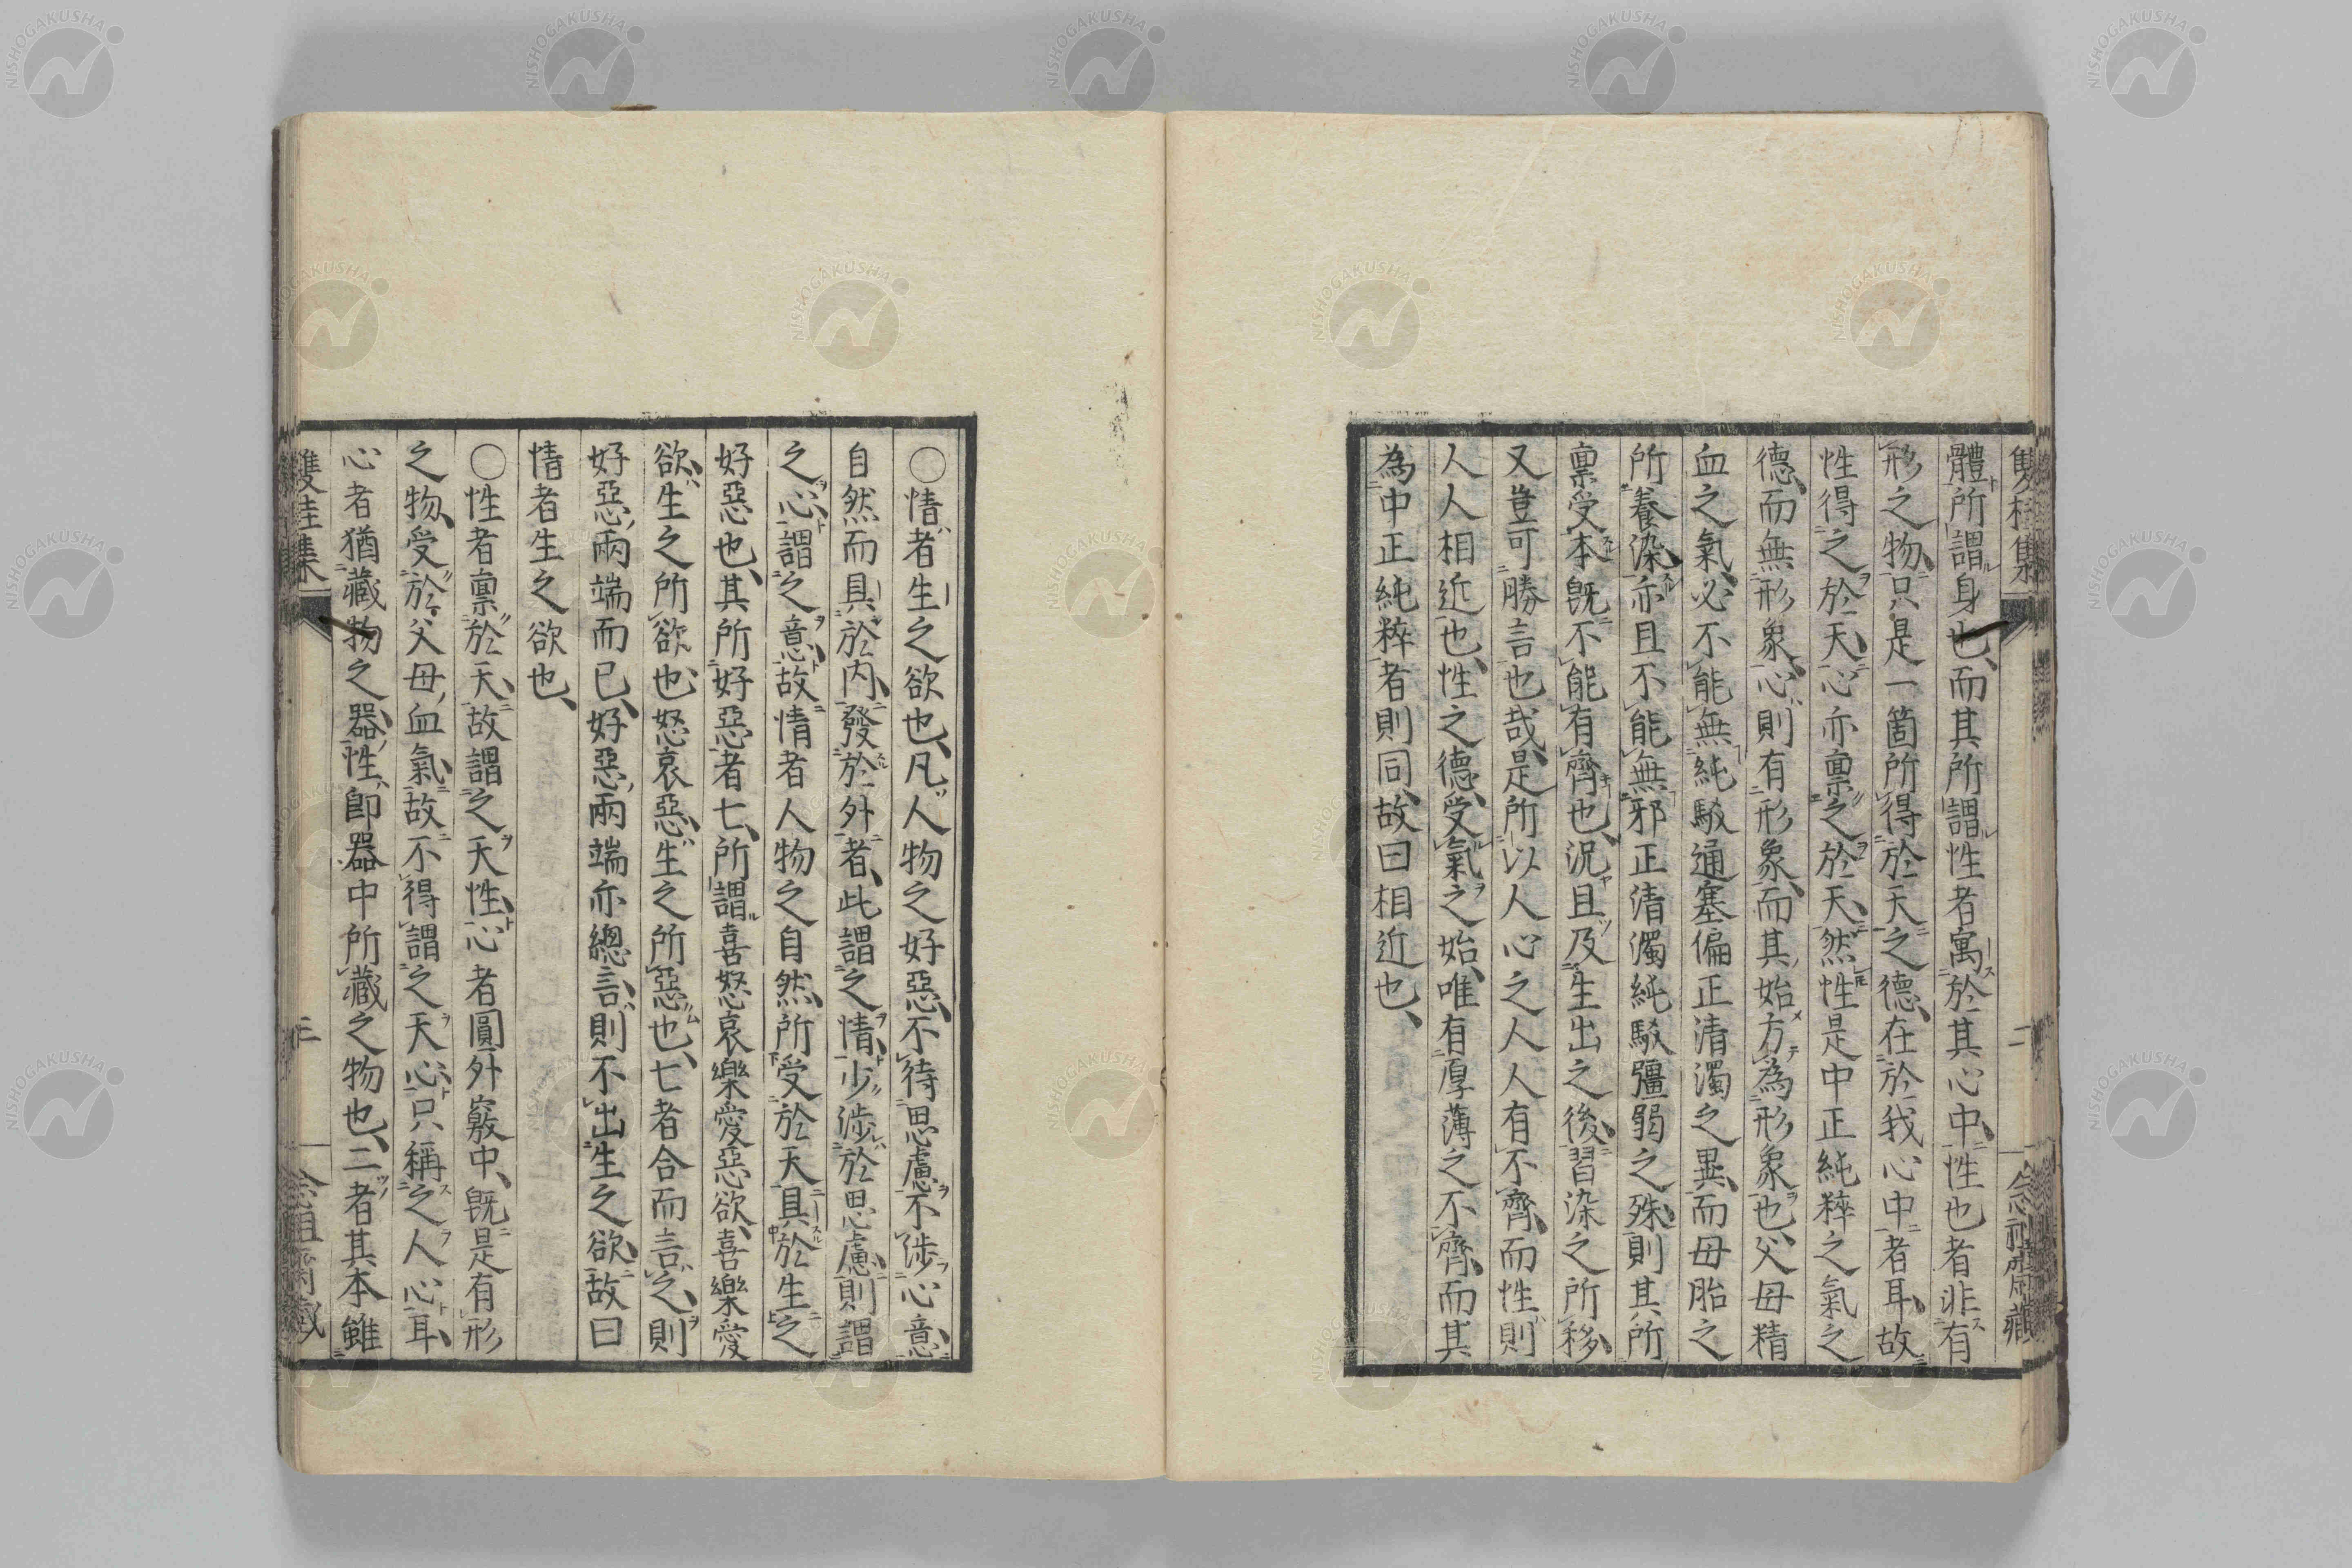 體所謂身也、而其所謂性者寓於其心中、性也者非有
形之物、只是一箇所得於天之德、在於我心中者耳、故
性得之於天、心亦稟之於天、然性是中正純粹之氣之
德、而無形象、心則有形象、而其始方為形象也、父母精
血之氣、必不能無純駁通塞偏正清濁之異、而母胎之
所養染、亦且不能無邪正清濁純駁彊弱之殊、則其所
稟受本既不能有齊也、況且及生出之後、習染之所移、
又豈可勝言也哉、是所以人心之人人有不齊、而性則
人人相近也、性之德、受氣之始、唯有厚薄之不齊、而其
為中正純粹者則同、故曰相近也、
〇情者生之欲也、凡人物之好惡、不待思慮、不涉心意、
自然而具於内、發於外者、此謂之情、少涉於思慮、則謂
之心、謂之意、故情者人物之自然、所受於天具於生之
好惡也、其所好惡者七、所謂喜怒哀樂愛惡欲、喜樂愛
欲、生之所欲也、怒哀惡、生之所惡也、七者合而言之、則
好惡兩端而已、好惡兩端亦總言、則不出生之欲、故曰
情者生之欲也、
〇性者稟於天、故謂之天性、心者圓外竅中、既是有形
之物、受於父母血氣、故不得謂之天心、只稱之人心耳、
心者猶藏物之器、性即器中所藏之物也、二者其本雖
NISHOGAKUSHA